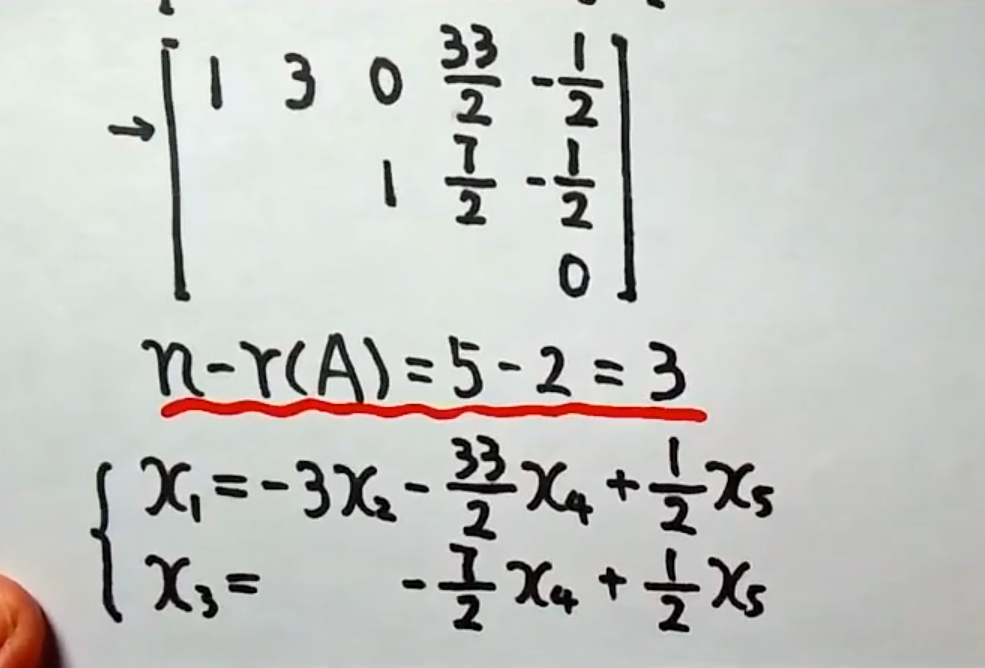 1 3 0 33/2 -1/2
→ 1 7/2 -1/2
0
n-r(A)=5-2=3
x₁=-3x₂-33/2x₄+1/2x₅
x₃= -7/2x₄+1/2x₅